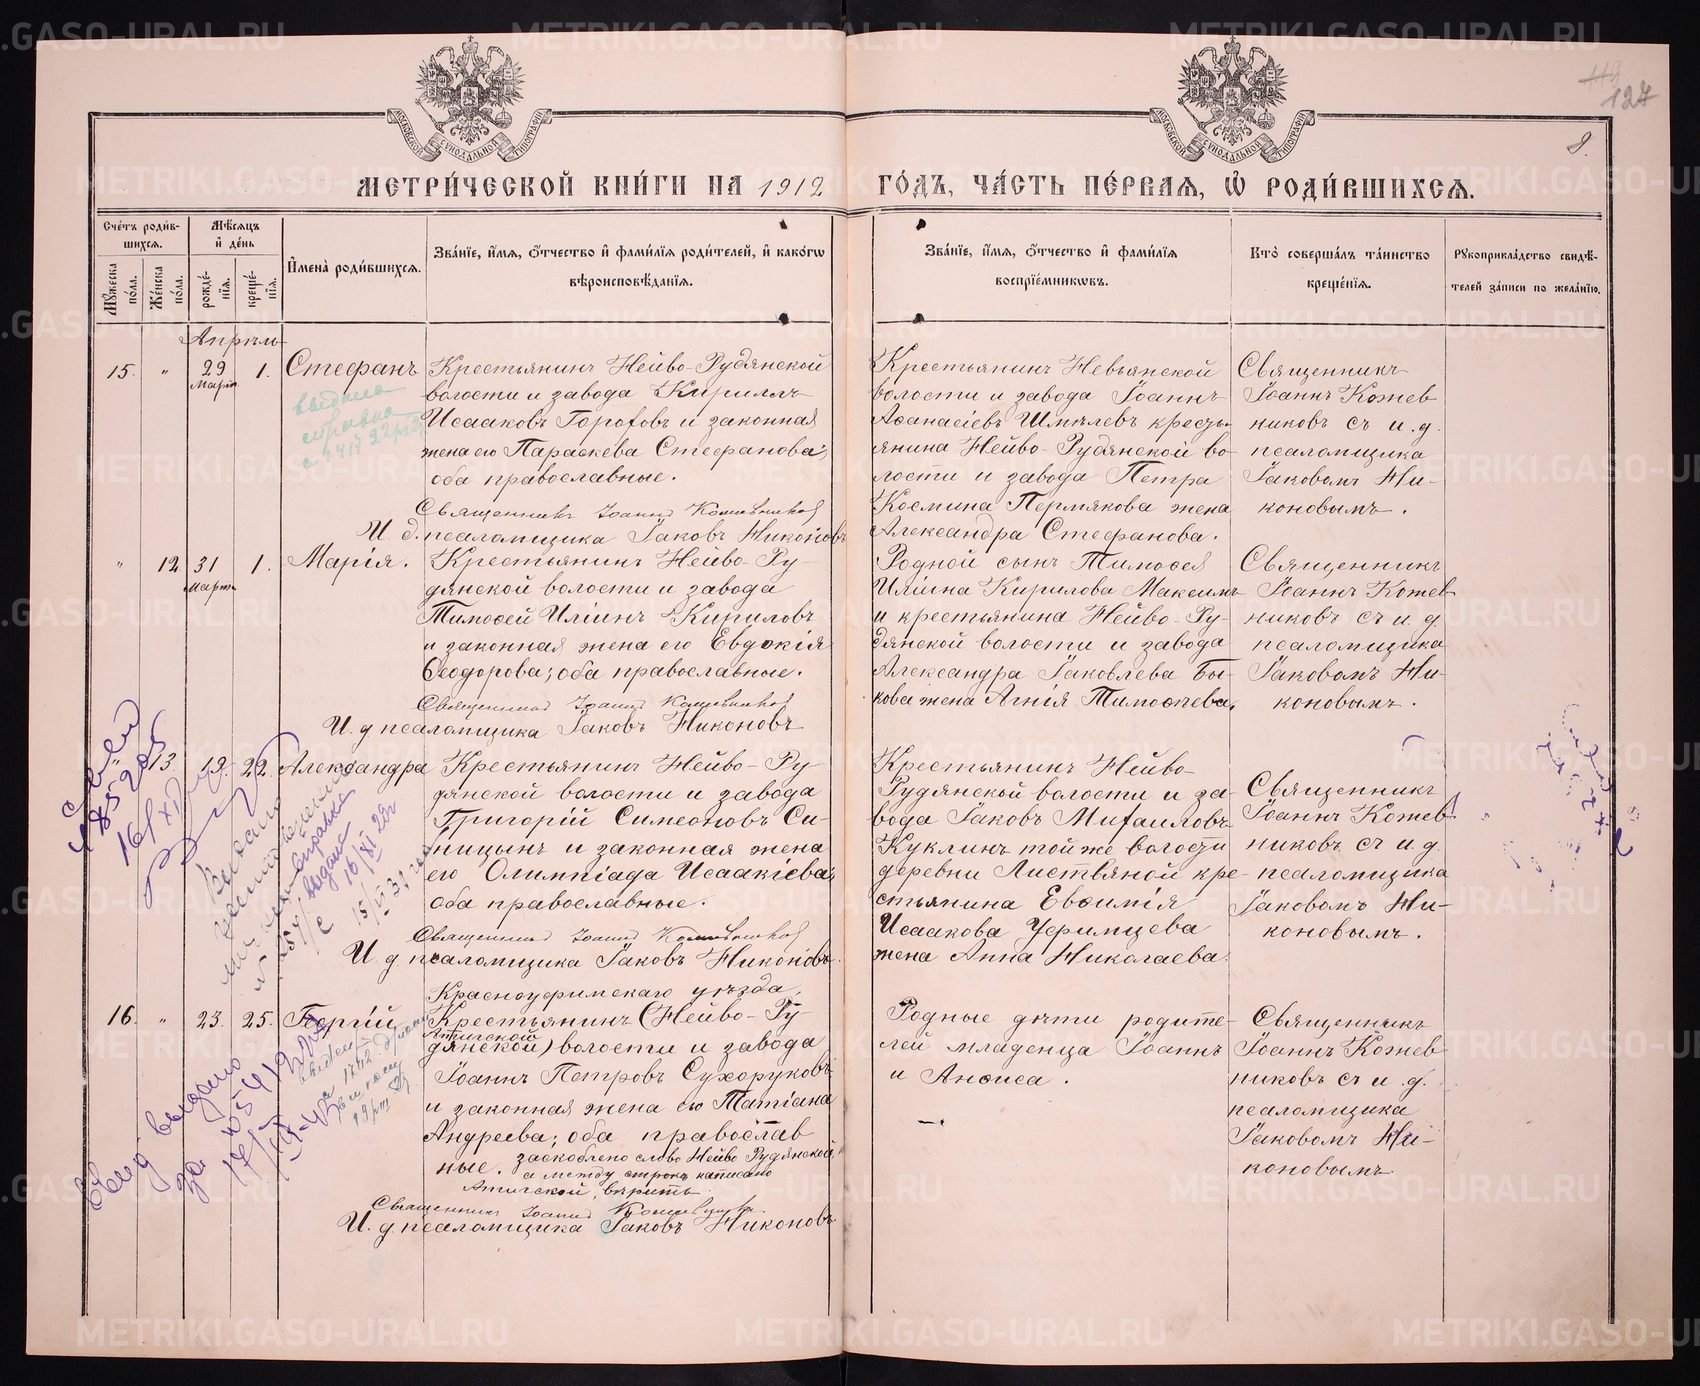 119
127
8.
МОСКОВСКОЙ СѴНОДАЛЬНОЙ ТИПОГРАФІИ
МОСКОВСКОЙ СѴНОДАЛЬНОЙ ТИПОГРАФІИ
МЕТРИ́ЧЕСКОЙ КНИ́ГИ НА 1912 ГО́ДЪ, ЧА́СТЬ ПЕ́РВАѦ, Ѡ҆ РОДИ́ВШИХСѦ.
Сче́тъ роди́в-
шихсѧ.
Мꙋжеска по́ла.
Же́нска по́ла.
Мѣ́сѧцъ и҆ де́нь
рожде́-
нїѧ.
креще́-
нїѧ.
И҆мена̀ роди́вшихсѧ.
Зва́нїе, и҆́мѧ, ѻ҆́тчество и҆ фами́лїѧ роди́телей, и҆ како́гѡ
вѣроисповѣ́данїѧ.
Зва́нїе, и҆́мѧ, ѻ҆́тчество и҆ фами́лїѧ
воспрїе́мникѡвъ.
Кто̀ соверша́лъ та́инство
креще́нїѧ.
Рꙋкоприкла́дство свидѣ́-
телей за́писи по жела́нїю.
Апрѣль
15. " 29 Марта 1. Стефанъ
Крестьянинъ Нейво-Рудянской
волости и завода Кириллъ
Исааковъ Гороховъ и законная
жена его Параскева Стефанова;
оба православные.
Священникъ Іоаннъ Кожевниковъ
И. д. псаломщика Іаковъ Никоновъ
Крестьянинъ Невьянской
волости и завода Іоаннъ
Аѳанасіевъ Шмелевъ кресть-
янина Нейво-Рудянской во-
лости и завода Петра
Космина Пермякова жена
Александра Стефанова.
Священникъ
Іоаннъ Кожев
никовъ съ и. д.
псаломщика
Іаковомъ Ни-
коновымъ.
выдана
справка
" 12 31 Марта 1. Марія.
Крестьянинъ Нейво-Ру-
дянской волости и завода
Тимоѳей Иліинъ Кириловъ
и законная жена его Евдокія
Ѳеодорова; оба православные.
Священникъ Іоаннъ Кожевниковъ
И. д псаломщика Іаковъ Никоновъ
Родной сынъ Тимоѳея
Иліина Кирилова Максимъ
и крестьянина Нейво-Ру-
дянской волости и завода
Александра Іаковлева Бы-
кова жена Агнія Тимоѳеева.
Священникъ
Іоаннъ Кожев
никовъ съ и. д.
псаломщика
Іаковомъ Ни-
коновымъ.
" 13 19. 22. Александра
Крестьянинъ Нейво-Ру-
дянской волости и завода
Григорій Симеоновъ Си-
ницынъ и законная жена
его Олимпіада Исаакіева;
оба православные.
Священникъ Іоаннъ Кожевниковъ
И д псаломщика Іаковъ Никоновъ.
Крестьянинъ Нейво-
Рудянской волости и за-
вода Іаковъ Михаиловъ
Куклинъ той же волости
деревни Листвяной кре-
стьянина Евѳимія
Исаакова Уфимцева
жена Анна Николаева.
Священникъ
Іоаннъ Кожев
никовъ съ и. д.
псаломщика
Іаковомъ Ни-
коновымъ.
справка
выдана
16/XI
16. " 23. 25. Георгій
Красноуфимскаго уѣзда,
Крестьянинъ (Нейво-Ру-
Атигской
дянской) волости и завода
Іоаннъ Петровъ Сухоруковъ
и законная жена его Татіана
Андреева; оба православ
ные. заскоблено слово Нейво Рудянской
а между строкъ написано
Атигской, вѣрить.
Священникъ Іоаннъ Кожевниковъ
И. д. псаломщика Іаковъ Никоновъ
Родные дѣти родите-
лей младенца Іоаннъ
и Анѳиса.
Священникъ
Іоаннъ Кожев
никовъ съ и. д.
псаломщика
Іаковомъ Ни-
коновымъ.
выдано
METRIKI.GASO-URAL.RU